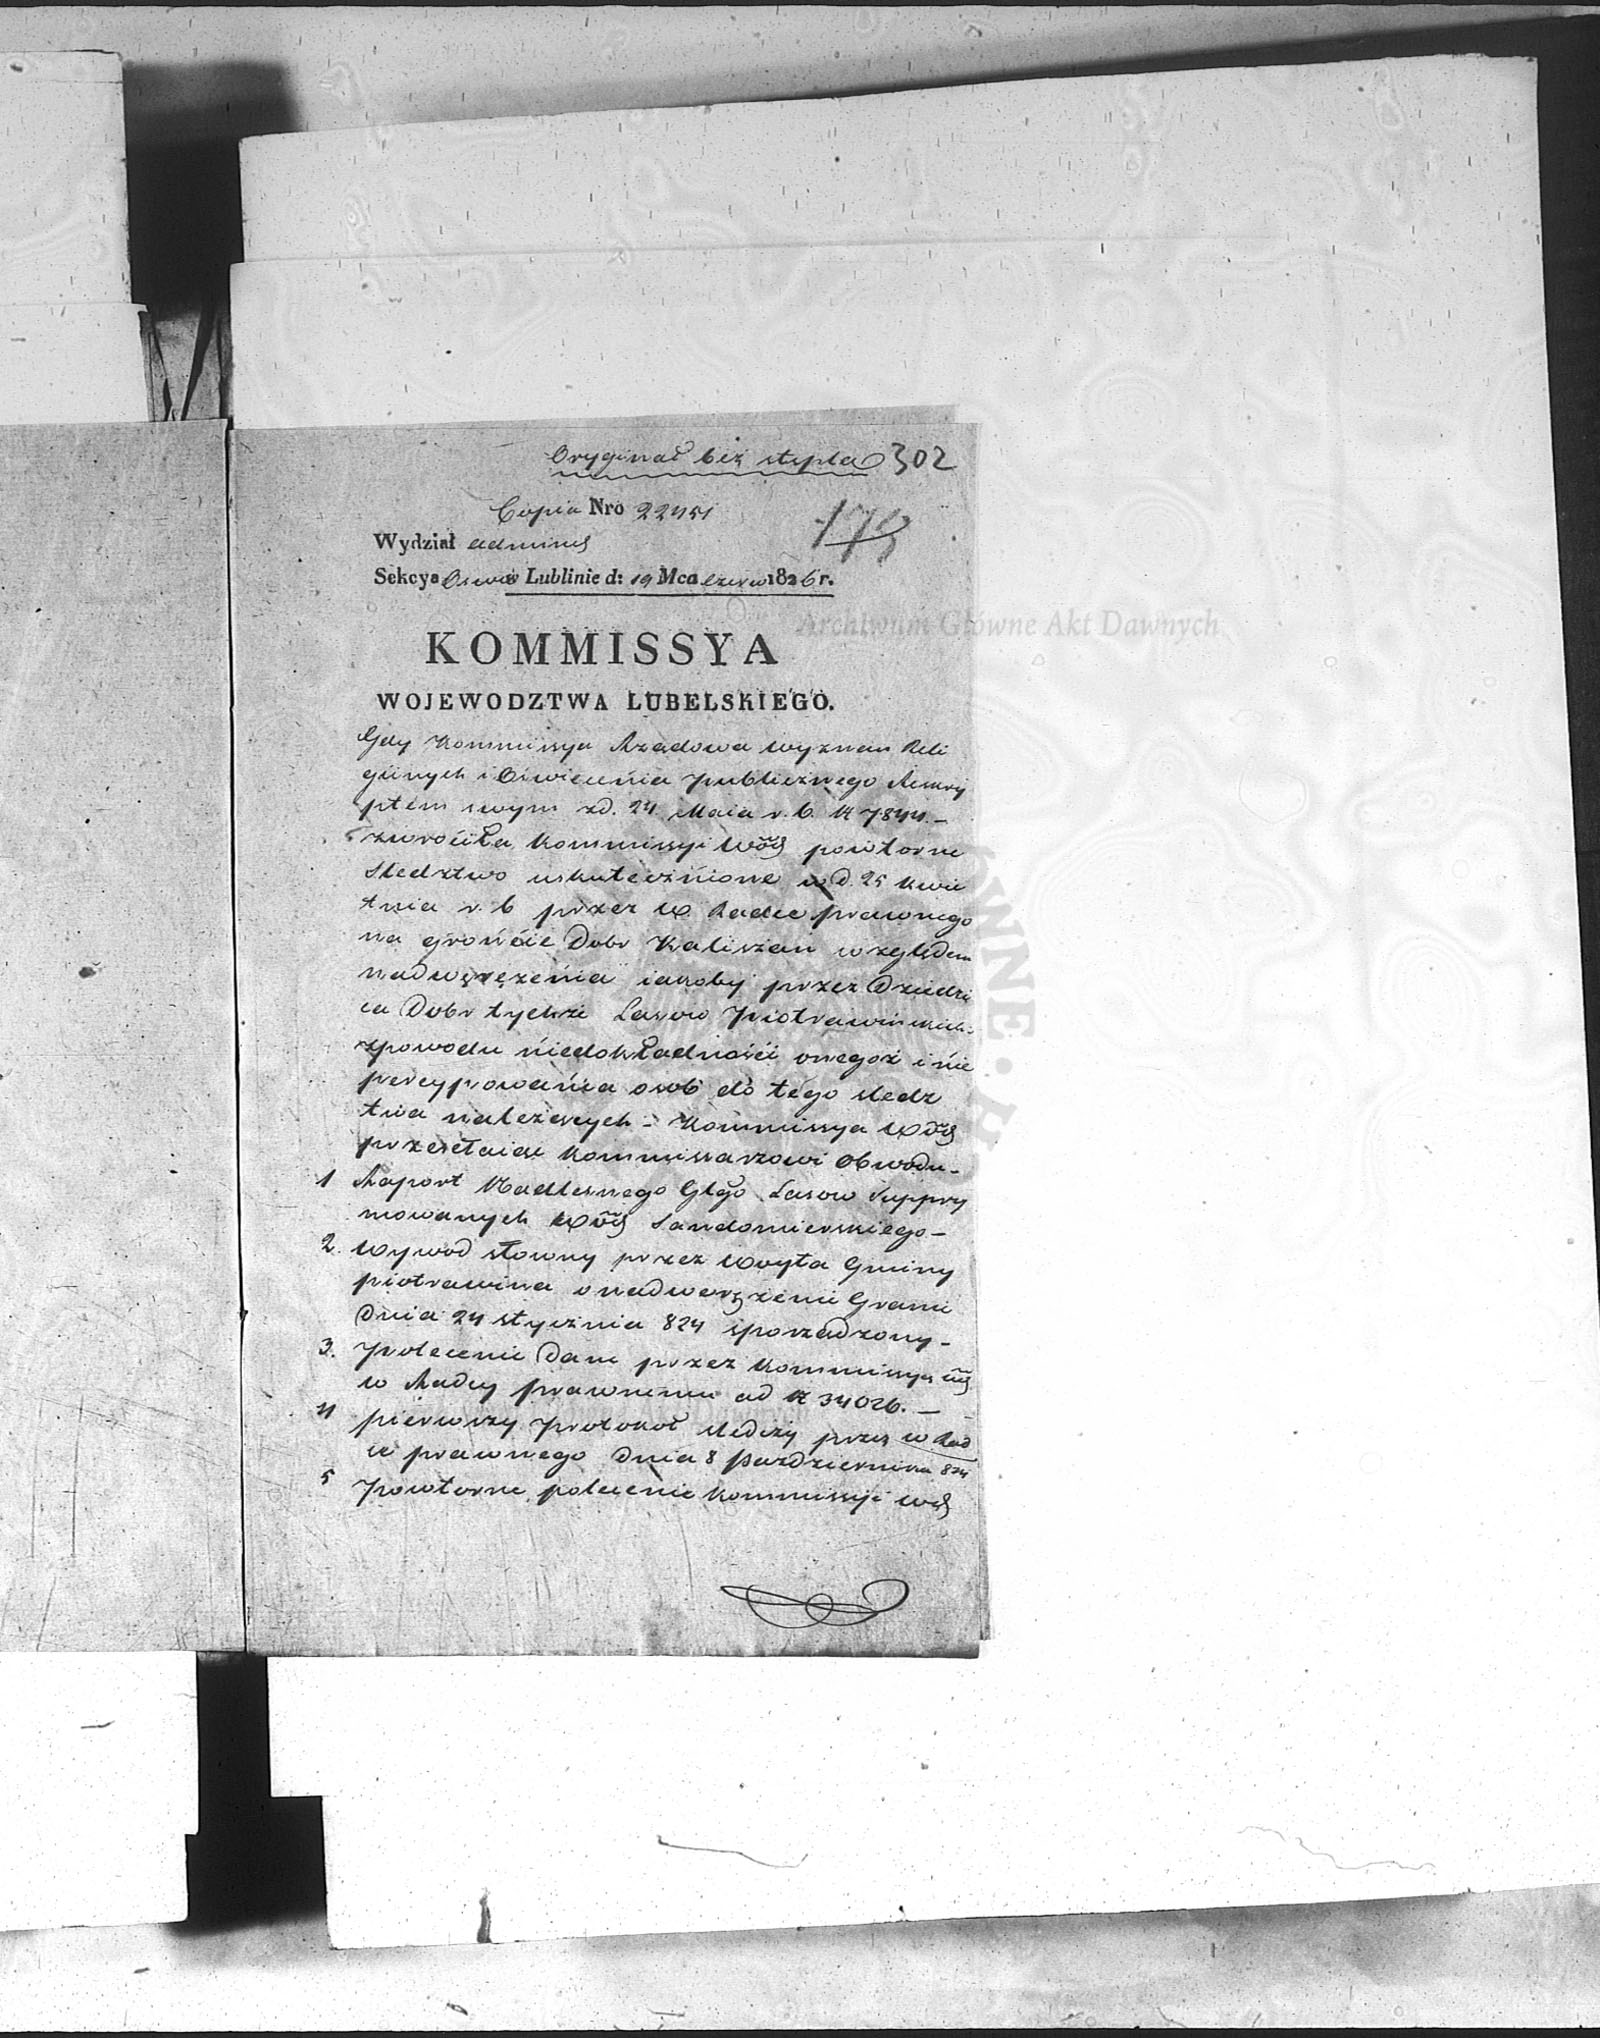 Oryginał bez stępla 302
Copia Nro 22451
179
Wydział administ
Sekcya Oswie w Lublinie d: 19 Mca Czerw 1826 r.
Archiwum Główne Akt Dawnych
KOMMISSYA
WOJEWODZTWA LUBELSKIEGO.
Gdy Kommissya Rządowa Wyznań Reli
giinych i Oświecenia Publicznego Reskry
ptem swym z d. 24 Maia r. b. N 7844.—
zwrociła Kommissyi Wdz powtorne
Sledztwo uskutecznione w d. 25 Kwie
tnia r. b przez W. Radcę prawnego
na gróncie Dobr Kaliszan względem
nadwerężenia iakoby przez Dziedzi
ca Dobr tychże Lasow Piotrawińskich
zpowodu niedokładności onegoż i nie
przypozwania osob do tego sledz
twa należących – Kommissya Wdz
przesełaiąc Kommissarzowi Obwodu –
1 Raport Nadlesnego Głgo Lasow Suppry
mowanych Wdz Sandomierskiego –
2. Wywod słowny przez Woyta Gminy
Piotrawina o nadweręzenie Granic
Dnia 24 stycznia 824 sporządzony –
3. Polecenie Dane przez Kommissyą
W Radcy prawnemu ad N 34026. —
4 pierwszy Protokoł sledczy przez W Rad
cę prawnego Dnia 8 Października 824
5 Powtorne polecenie Kommissyi